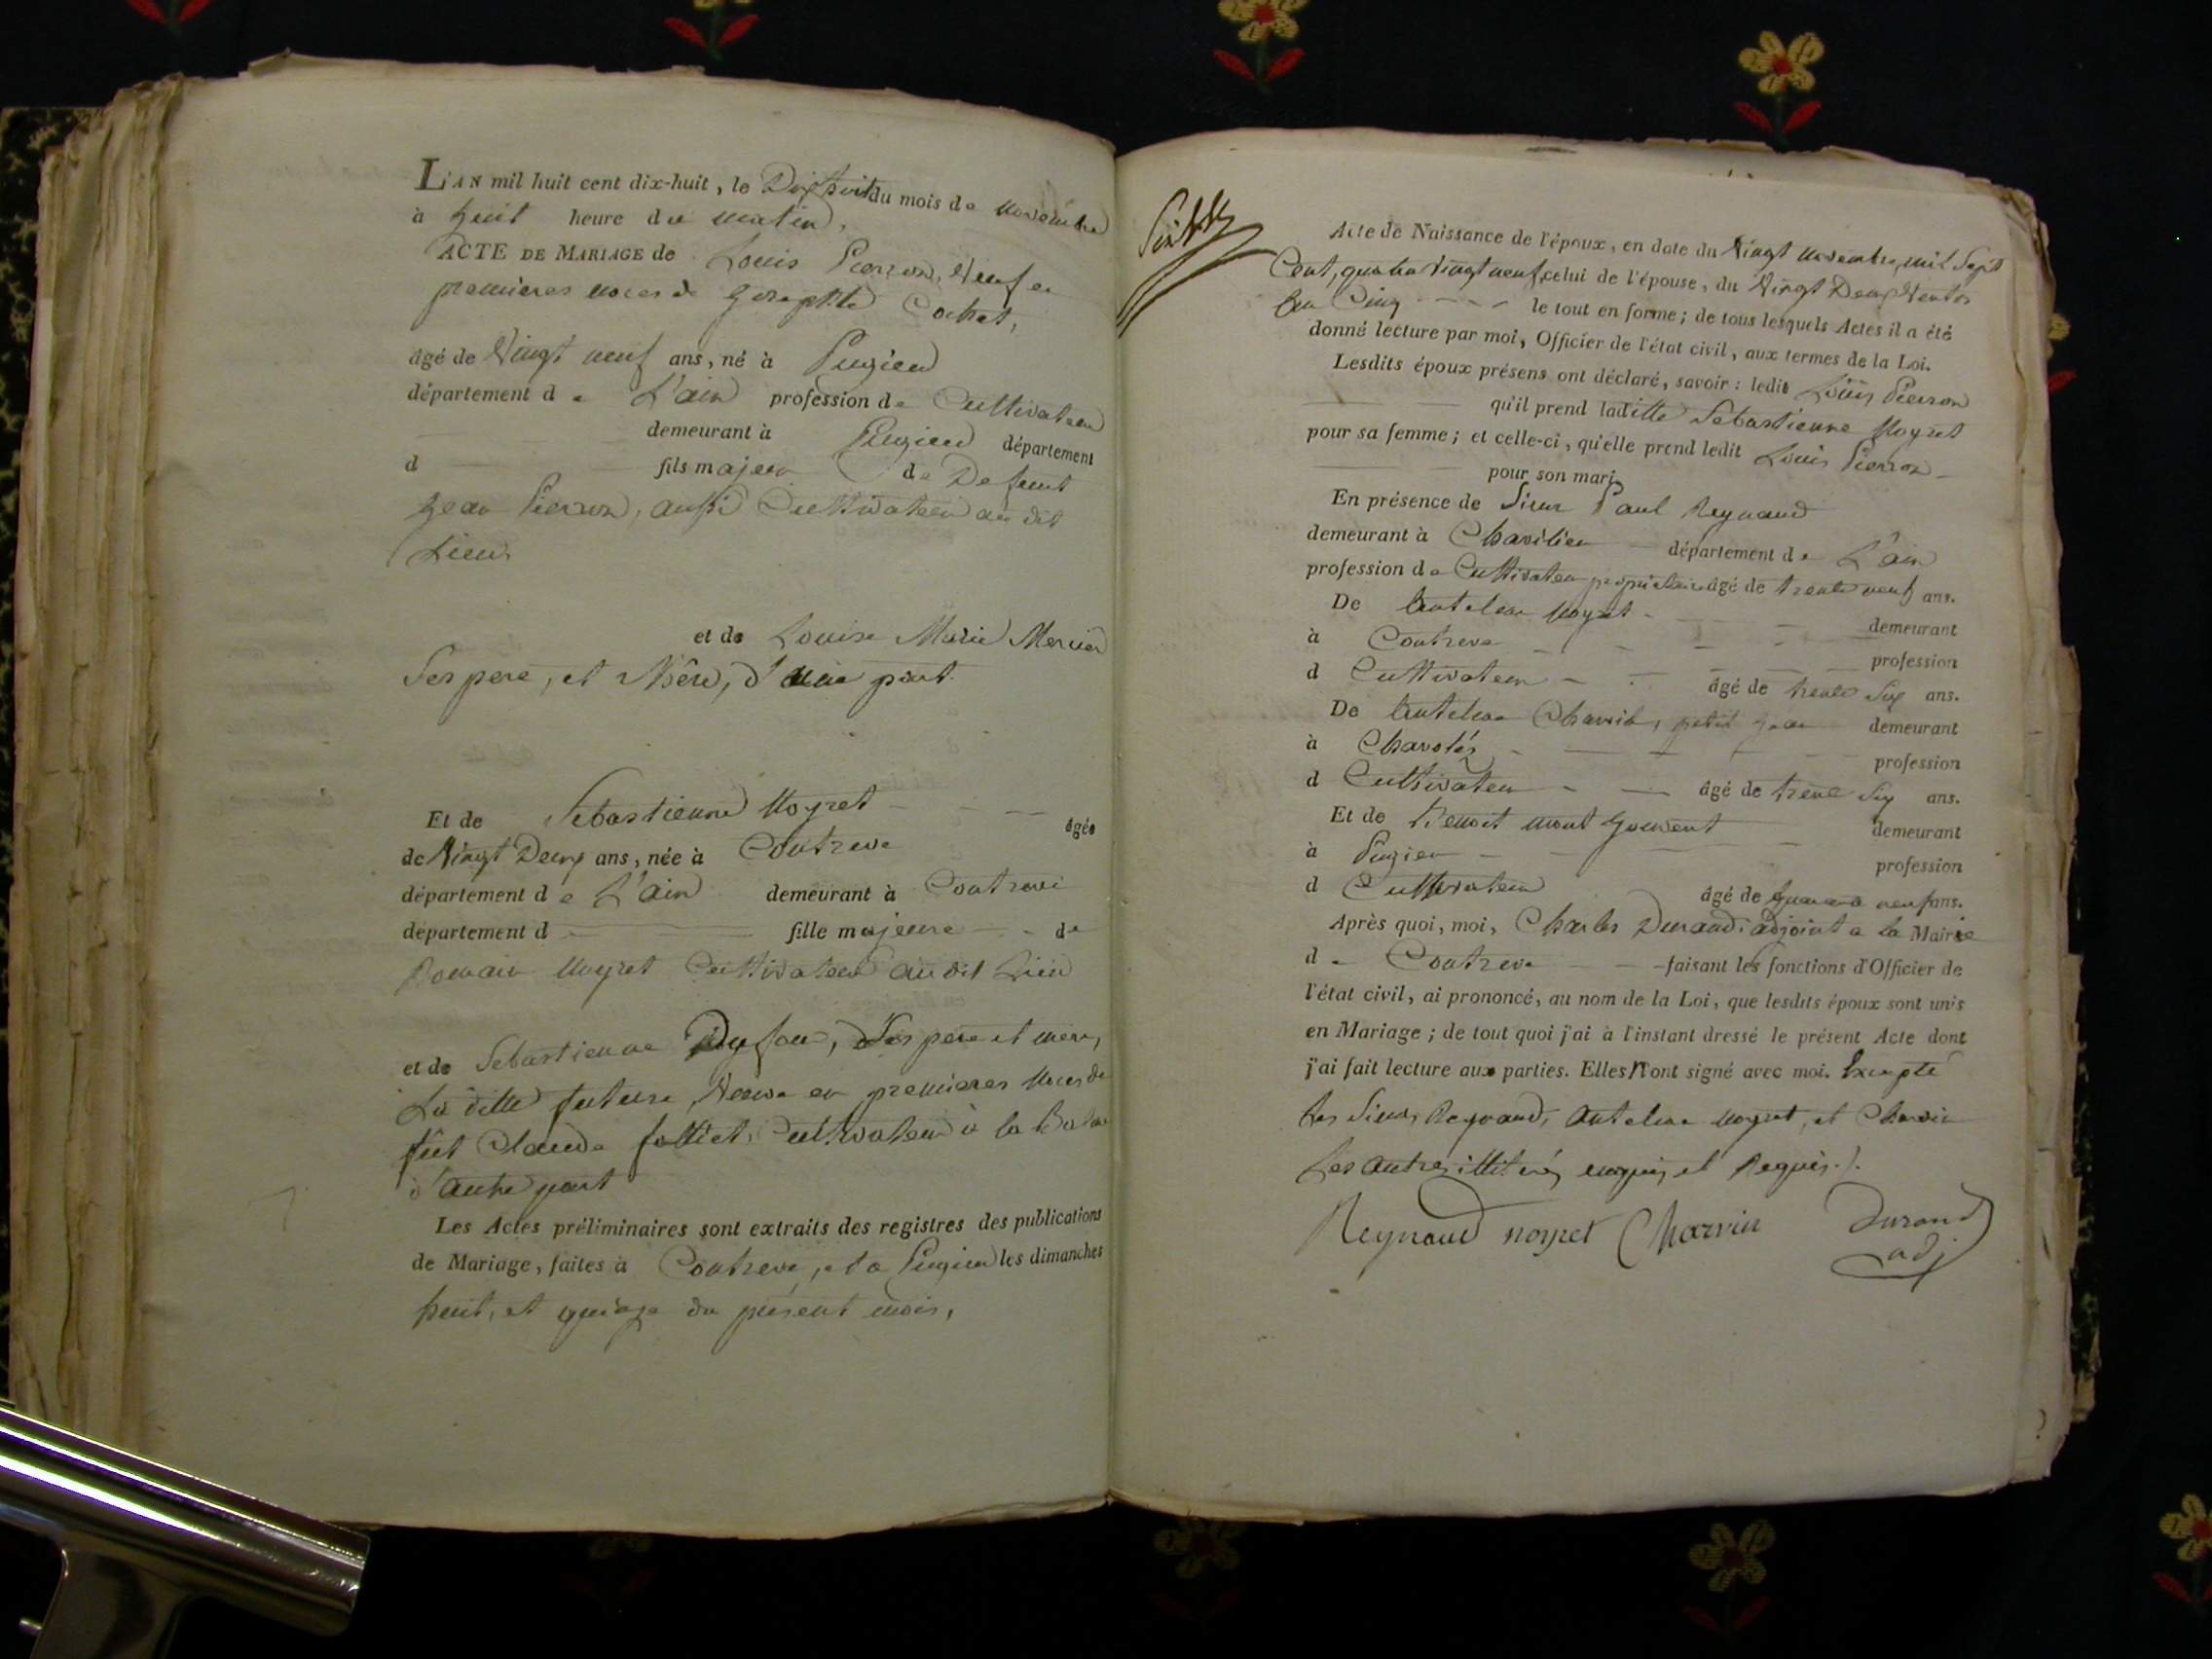 L'AN mil huit cent dix-huit, le Dixhuit du mois de novembre
à huit heure du matin,
ACTE DE MARIAGE de Louis Pierron, Veuf en
premieres noces de Cochet,
âgé de Vingt neuf ans, né à Pugieu
département de L'ain profession de Cultivateur
demeurant à Pugieu département
d fils majeur de Defunt
Jean Pierron, aussi Cultivateur au dit
Lieu
et de Louise Marie Mercier
Ses pere, et Mère, d'une part
Et de Sebastienne Noyret âgée
de Vingt Deux ans, née à Contreve
département de L'ain demeurant à Contreve
département d fille majeure de
Romain Noyret Cultivateur au dit Lieu
et de Sebastienne Dufour, Ses pere et mere,
La ditte future, Veuve en premieres Noces de
fut Claude Cultivateur à la
d'autre part
Les Actes préliminaires sont extraits des registres des publications
de Mariage, faites à Contreve, et a Pugieu les dimanches
huit, et quinze du présent mois,
Acte de Naissance de l'époux, en date du Vingt novembre, mil Sept
Cent, quatre Vingt neuf, celui de l'épouse, du Vingt Deux Ventos
an Cinq le tout en forme; de tous lesquels Actes il a été
donné lecture par moi, Officier de l'état civil, aux termes de la Loi.
Lesdits époux présens ont déclaré, savoir: ledit Louis Pierron
qu'il prend laditte Sebastienne Noyret
pour sa femme; et celle-ci, qu'elle prend ledit Louis Pierron
pour son mari.
En présence de Sieur Paul Reynaud
demeurant à Chavilieu département de L'ain
profession de Cultivateur proprietaire âgé de trente neuf ans.
De Antelme Noyret demeurant
à Contreve profession
d Cultivateur âgé de trente Six ans.
De Antelme Charvin, petit Jean demeurant
à profession
d Cultivateur âgé de trente Six ans.
Et de Benoit mont demeurant
à Pugieu profession
d Cultivateur âgé de quarante neuf ans.
Après quoi, moi, Charles Durand adjoint a la Mairie
de Contreve faisant les fonctions d'Officier de
l'état civil, ai prononcé, au nom de la Loi, que lesdits époux sont unis
en Mariage; de tout quoi j'ai à l'instant dressé le présent Acte dont
j'ai fait lecture aux parties. Elles n'ont signé avec moi. Excepté
les Sieurs Reynaud, antelme noyret, et Charvin
Les autres illiterés enquis et Requis./.
Reynaud noyret Charvin Durand
adj